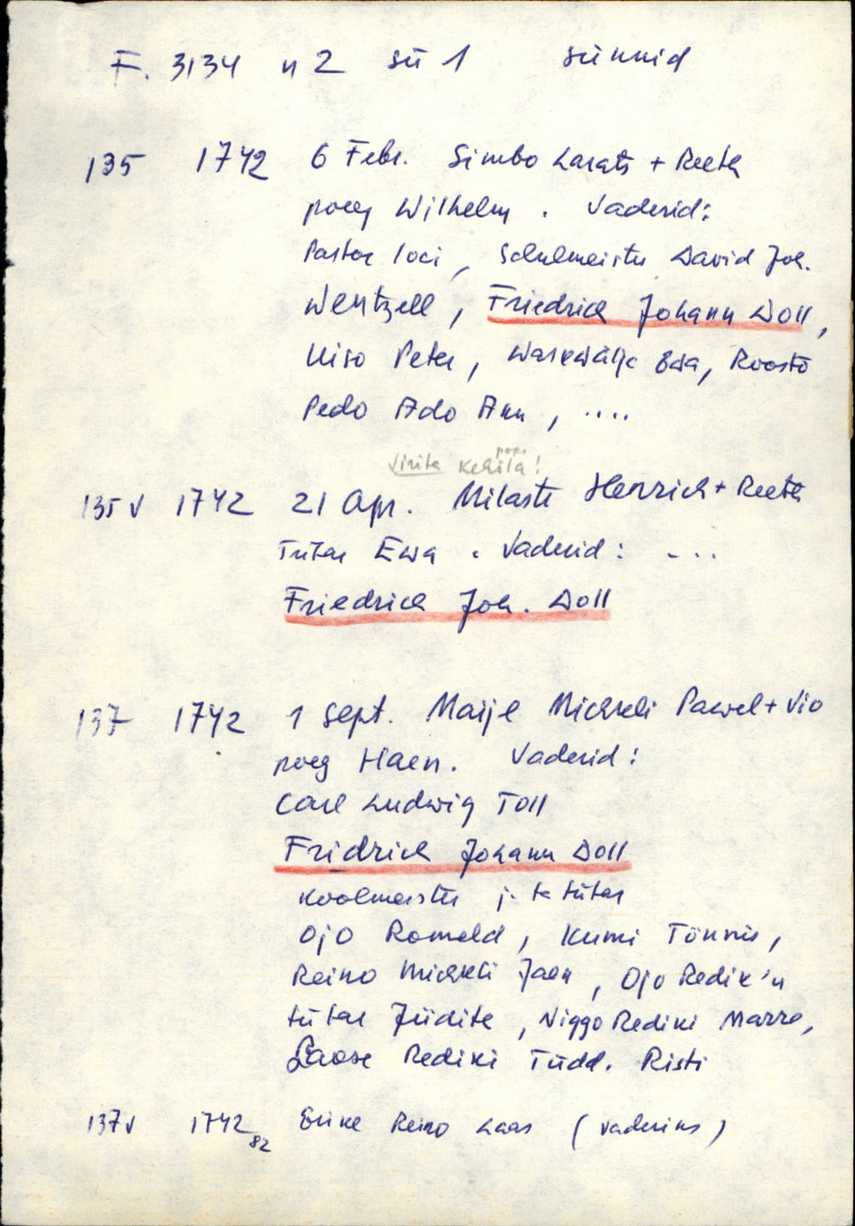 F. 3134 n 2 sü 1 sünnid
135 1742 6 Febr. Simbo Larats + Reeth
poeg Wilhelm. Vaderid:
Pastor loci, Schulmeister David Joh.
Wentzell, Friedrich Johann Doll,
Peter, Ewa, Roosto
Pedo Ado Ann, ....
135v 1742 21 Apr. Milasti Henrich + Reeth
Tütar Ewa. Vaderid: ...
Friedrich Joh. Doll
137 1742 1 Sept. Maije Michkeli Pawel + Vio
poeg Haen. Vaderid:
Carl Ludwig Toll
Fridrich Johann Doll
Koolmeister j. ta tütar
Ojo Romeld, Kumi Tönnis,
Reino Michkeli Jaen, Ojo Redik'u
tütar Jüdite, Niggo Rediki Marre,
Laose Rediki Tüdd. Risti
137v 1742 82 Reino Laas (vaderiks)